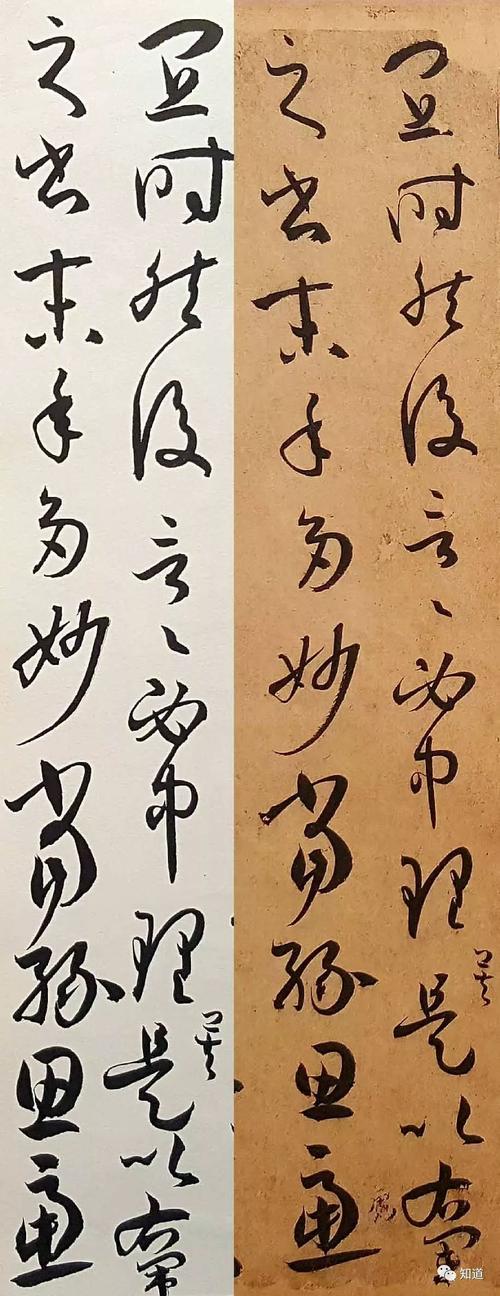 宜時然後言〻必中理矣是以右軍
之書末年多妙當緣思慮
宜時然後言〻必中理矣是以右軍
之書末年多妙當緣思慮
知道